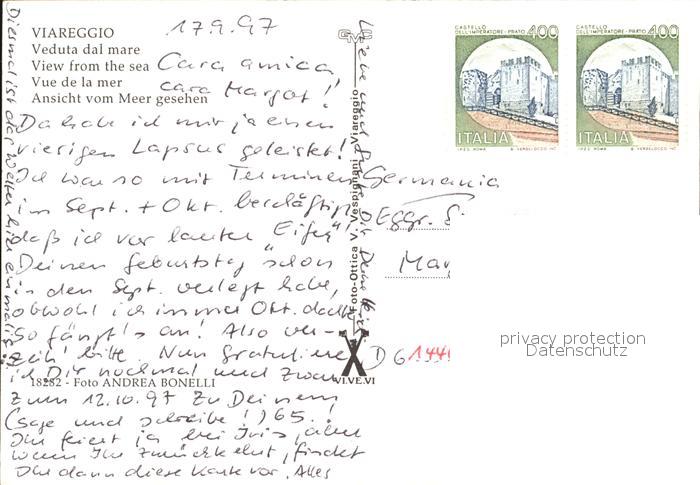 VIAREGGIO
Veduta dal mare
View from the sea
Vue de la mer
Ansicht vom Meer gesehen
17.9.97
Cara amica,
cara Margot!
Da habe ich mir ja einen
riesigen Lapsus geleistet!
Ich war so mit Terminen
im Sept. + Okt. beschäftigt,
daß ich vor lauter "Eifer"
Deinen Geburtstag schon
in den Sept. verlegt habe,
obwohl ich immer Okt. dachte.
So fängt's an! Also ver-
zeih' bitte. Nun gratuliere
ich Dir nochmal und zwar
zum 12.10.97 zu Deinem
(sage und schreibe!) 65.!
Ihr feiert ja bei Iris,
wenn Ihr zurückkehrt, findet
Ihr dann diese Karte vor. Alles
Liebe und
Diesmal ist das Wetter hier einmalig
18282 - Foto ANDREA BONELLI
Foto-Ottica V. Vespignani Viareggio
VI.VE.VI
CASTELLO DELL'IMPERATORE - PRATO 400
ITALIA
I.P.Z.S. ROMA
E. VERSELLOCCO INC.
CASTELLO DELL'IMPERATORE - PRATO 400
ITALIA
I.P.Z.S. ROMA
E. VERSELLOCCO INC.
Germania
Eggr. S.
Mar
D 6
144
privacy protection
Datenschutz